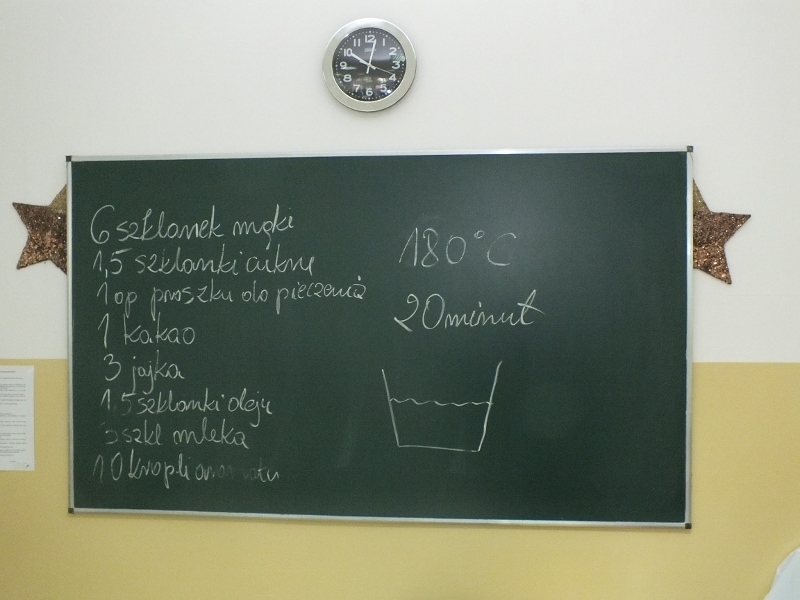 12
1
2
3
4
5
6
7
8
9
10
11
6 szklanek mąki
1,5 szklanki cukru
1 op proszku do pieczenia
1 kakao
3 jajka
1,5 szklanki oleju
3 szkl mleka
10 kropli aromatu
180°C
20 minut